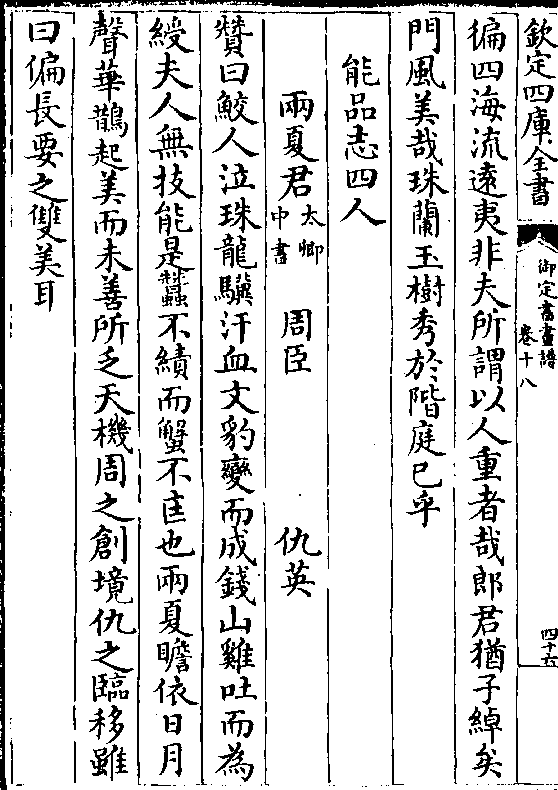 欽定四庫全書
御定書畫譜
卷十八
四十六
徧四海流遠夷非夫所謂以人重者哉郎君猶子綽矣
門風美哉珠蘭玉樹秀於階庭已乎
能品志四人
兩夏君太卿中書 周臣 仇英
贊曰鮫人泣珠龍驥汗血文豹變而成錢山雞吐而為
綬夫人無技能是蠶不績而蟹不匡也兩夏瞻依日月
聲華鵲起美而未善所乏天機周之創境仇之臨移雖
曰偏長要之雙美耳